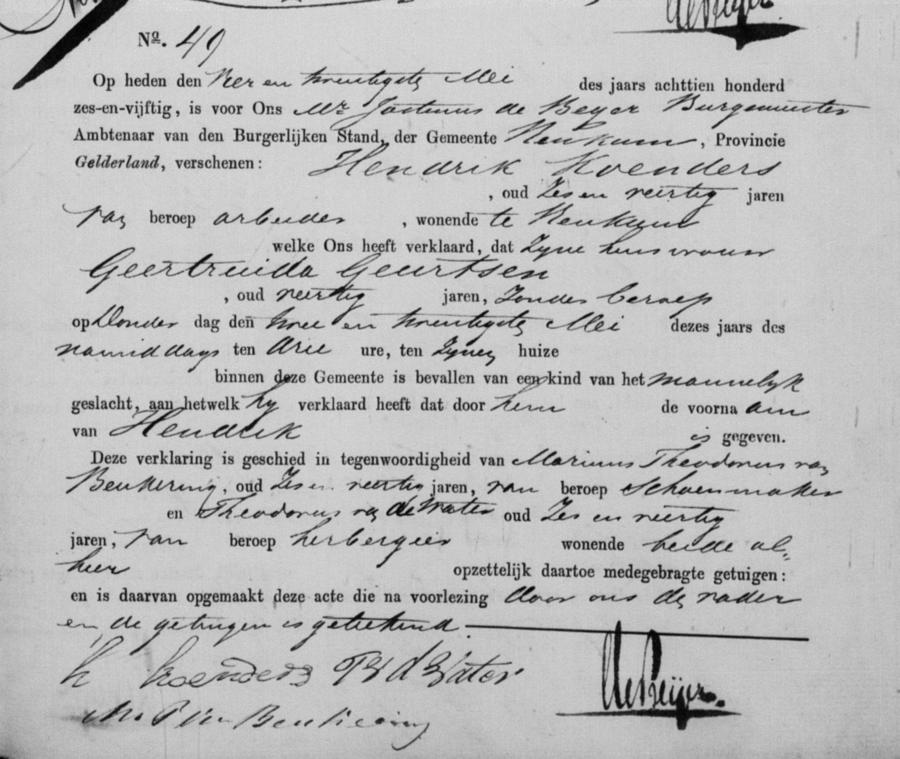 de Beijer
No. 49
Op heden den Vier en twentigste Mei des jaars achttien honderd
zes-en-vijftig, is voor Ons Mr Justinus de Beyer Burgemeester
Ambtenaar van den Burgerlijken Stand, der Gemeente Renkum, Provincie
Gelderland, verschenen: Hendrik Koenders
, oud Zes en veertig jaren
van beroep arbeider , wonende te Renkum
welke Ons heeft verklaard, dat Zyne huisvrouw
Geertruida Geurtsen
, oud veertig jaren, Zonder beroep
op Donder dag den twee en twentigste Mei dezes jaars des
namiddags ten drie ure, ten Zynen huize
binnen deze Gemeente is bevallen van een kind van het mannelyk
geslacht, aan hetwelk hy verklaard heeft dat door hem de voorna am
van Hendrik is gegeven.
Deze verklaring is geschied in tegenwoordigheid van Marinus Theodorus van
Beukering, oud Zes en veertig jaren, van beroep Schoenmaker
en Theodorus van de Water oud Zes en veertig
jaren, van beroep herbergier wonende beide al=
hier opzettelijk daartoe medegebragte getuigen:
en is daarvan opgemaakt deze acte die na voorlezing door ons de vader
en de getuigen is getekend.
h koenders Th d Water
de Beijer
M T v Beukering